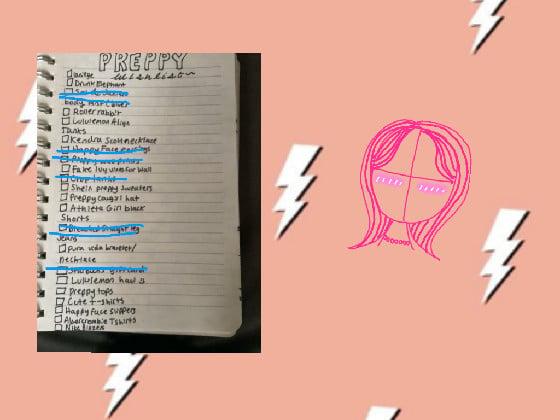 PREPPY
wishlist
Drunk Elephant
body mist
Roller rabbit
Lululemon Align
Tanks
Kendra Scott necklace
Happy Face earrings
Preppy
Fake Ivy vines for Wall
Shein preppy sweaters
Preppy cowgirl hat
Athleta Girl black
Shorts
Straight leg
Jeans
Pura vida bracelet/
necklace
Starbucks gift card
Lululemon
Preppy tops
Cute t-shirts
Happy face slippers
Abercrombie Tshirts
Nike